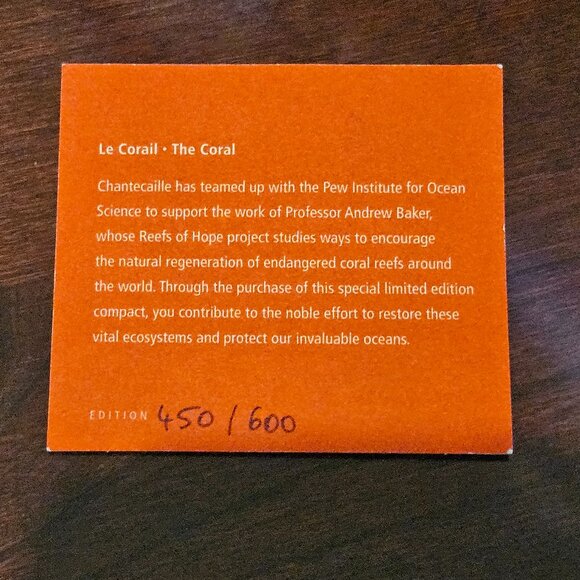 Le Corail • The Coral
Chantecaille has teamed up with the Pew Institute for Ocean
Science to support the work of Professor Andrew Baker,
whose Reefs of Hope project studies ways to encourage
the natural regeneration of endangered coral reefs around
the world. Through the purchase of this special limited edition
compact, you contribute to the noble effort to restore these
vital ecosystems and protect our invaluable oceans.
EDITION 450 / 600